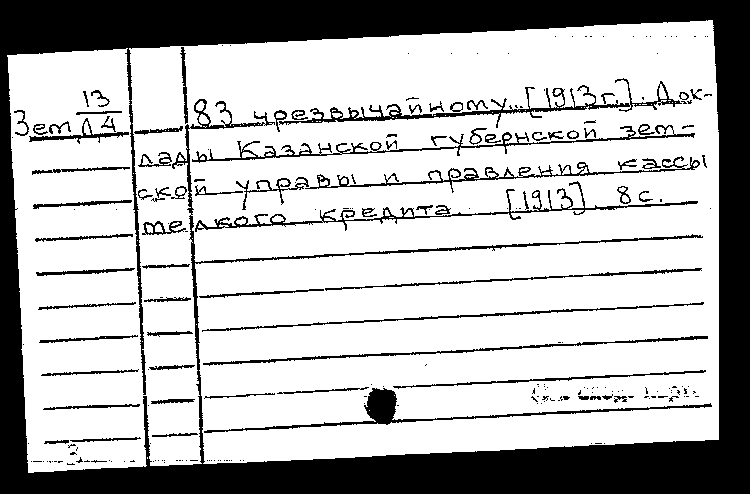 Зем 13/Л4
83 чрезвычайному... [1913 г.]. Док-
лады Казанской губернской зем-
ской управы и правления кассы
мелкого кредита. [1913]. 8 с.
3